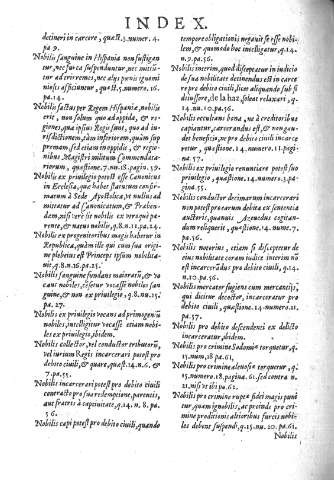 INDEX.
detineri in carcere, quæst. 5. numer. 4.
pa 9.
Nobilis sanguine in Hispania non fustigan
tur, nec furca suspenduntur, nec mittũ-
tur ad trirremes, nec alijs penis igomi
niosis afficiuntur, quæst. 5. numero. 16.
pa. 14.
Nobilis factus per Regem Hispaniæ, nobilis
erit, non solum quo ad oppida, & re-
giones, quæ ipsius Regis sunt, quo ad iu-
risdictionem, & am inferiorum, quam sup
premam, sed etiam in oppidis, & regio-
nibus Magistri militum Commendata-
riorum, quæstione, 7. nu. 18. pagin. 59.
Nobilis ex priuilegio potest esse Canonicus
in Ecclesia, quæ habet statutum confir-
matum à Sede Apostolica, vt nullus ad
mittatur ad Canonicatum, & Præben-
dam, nisi verè sit nobilis ex vtroque pa-
rente, & natus nobilis, q. 8. n. 11. pa. 24.
Nobilis ex progenitoribus magis habetur in
Republica, quàm ille qui cum sua origi-
ne plebeius est Princeps ipsum nobilita-
uit. q. 8. n. 16. pa. 25.
Nobilis sanguine fundans maioratũ, & vo
cans nobiles, cesetur vocasse nobiles san
guine, & non ex priuilegio, q. 8. nu. 15.
pa. 27.
Nobilis ex priuilegio vocans ad primogeniũ
nobiles, intelligitur vocasse etiam nobi-
les ex priuilegio, ibidem.
Nobilis collector, vel conductor tributorũ,
vel iurium Regis incarcerari potest pro
debito ciuili, & quare, quæst. 14. n. 6. &
7. pa. 55.
Nobilis incarcerari potest pro debito ciuili
contracto pro sua redemptione, parentis,
aut fratris à captiuitate, q. 14. n. 8. pa.
56.
Nobilis capi potest pro debito ciuili, quando
tempore obligationis negauit se esse nobi-
lem, & quomodo hoc intelligatur, q. 14.
n. 9. pa. 56.
Nobilis interim, quod disceptatur in iudicio
de sua nobilitate detinendus est in carce
re pro debito ciuili, licet aliquando sub fi
diussore, de la haz, solent relaxari, q.
14. nu. 10. pa. 56.
Nobilis occultans bona, ne à creditoribus
capiantur, carcerandus est, & non gau-
det beneficio, ne pro debito ciuili incarce
retur, quæstione. 14. numero. 11. pagi-
na. 57.
Nobilis ex priuilegio renuntiare potest suo
priuilegio, quæstione. 14. numero, 3. pa-
gina. 55.
Nobilis conductor decimarum incarcerari
non potest pro earum debita ex sententia
auctoris, quamuis Azeuedus cogitan-
dum reliquerit, quæstione, 14. nume. 7.
pa. 56.
Nobilis notorius, etiam si disceptetur de
eius nobilitate coram iudice interim nũ
est incarcerãdus pro debito ciuili, q. 14.
n. 10. pa. 56.
Nobilis mercator fugiens cum mercantijs,
qui dicitur decoctor, incarceratur pro
debito ciuili, quæstion. 14. numero. 11.
pa. 57.
Nobilis pro debito descendenti ex delicto
incarceratur, ibidem.
Nobilis pro crimine Sodomiæ torquetur, q.
15. num. 18. pa. 61,
Nobilis pro crimine aleuosiæ torquetur, q.
15. numero. 18. pagina, 61. sed contra n.
21. nisi vt ibi pa. 62.
Nobilis pro crimine ruptæ fidei magis puni
tur, quam ignobilis, ac proinde pro cri-
mine proditionis altioribus furcis nobi-
les debent suspendi, q. 15. nu. 20. pa. 61.
Nobilis